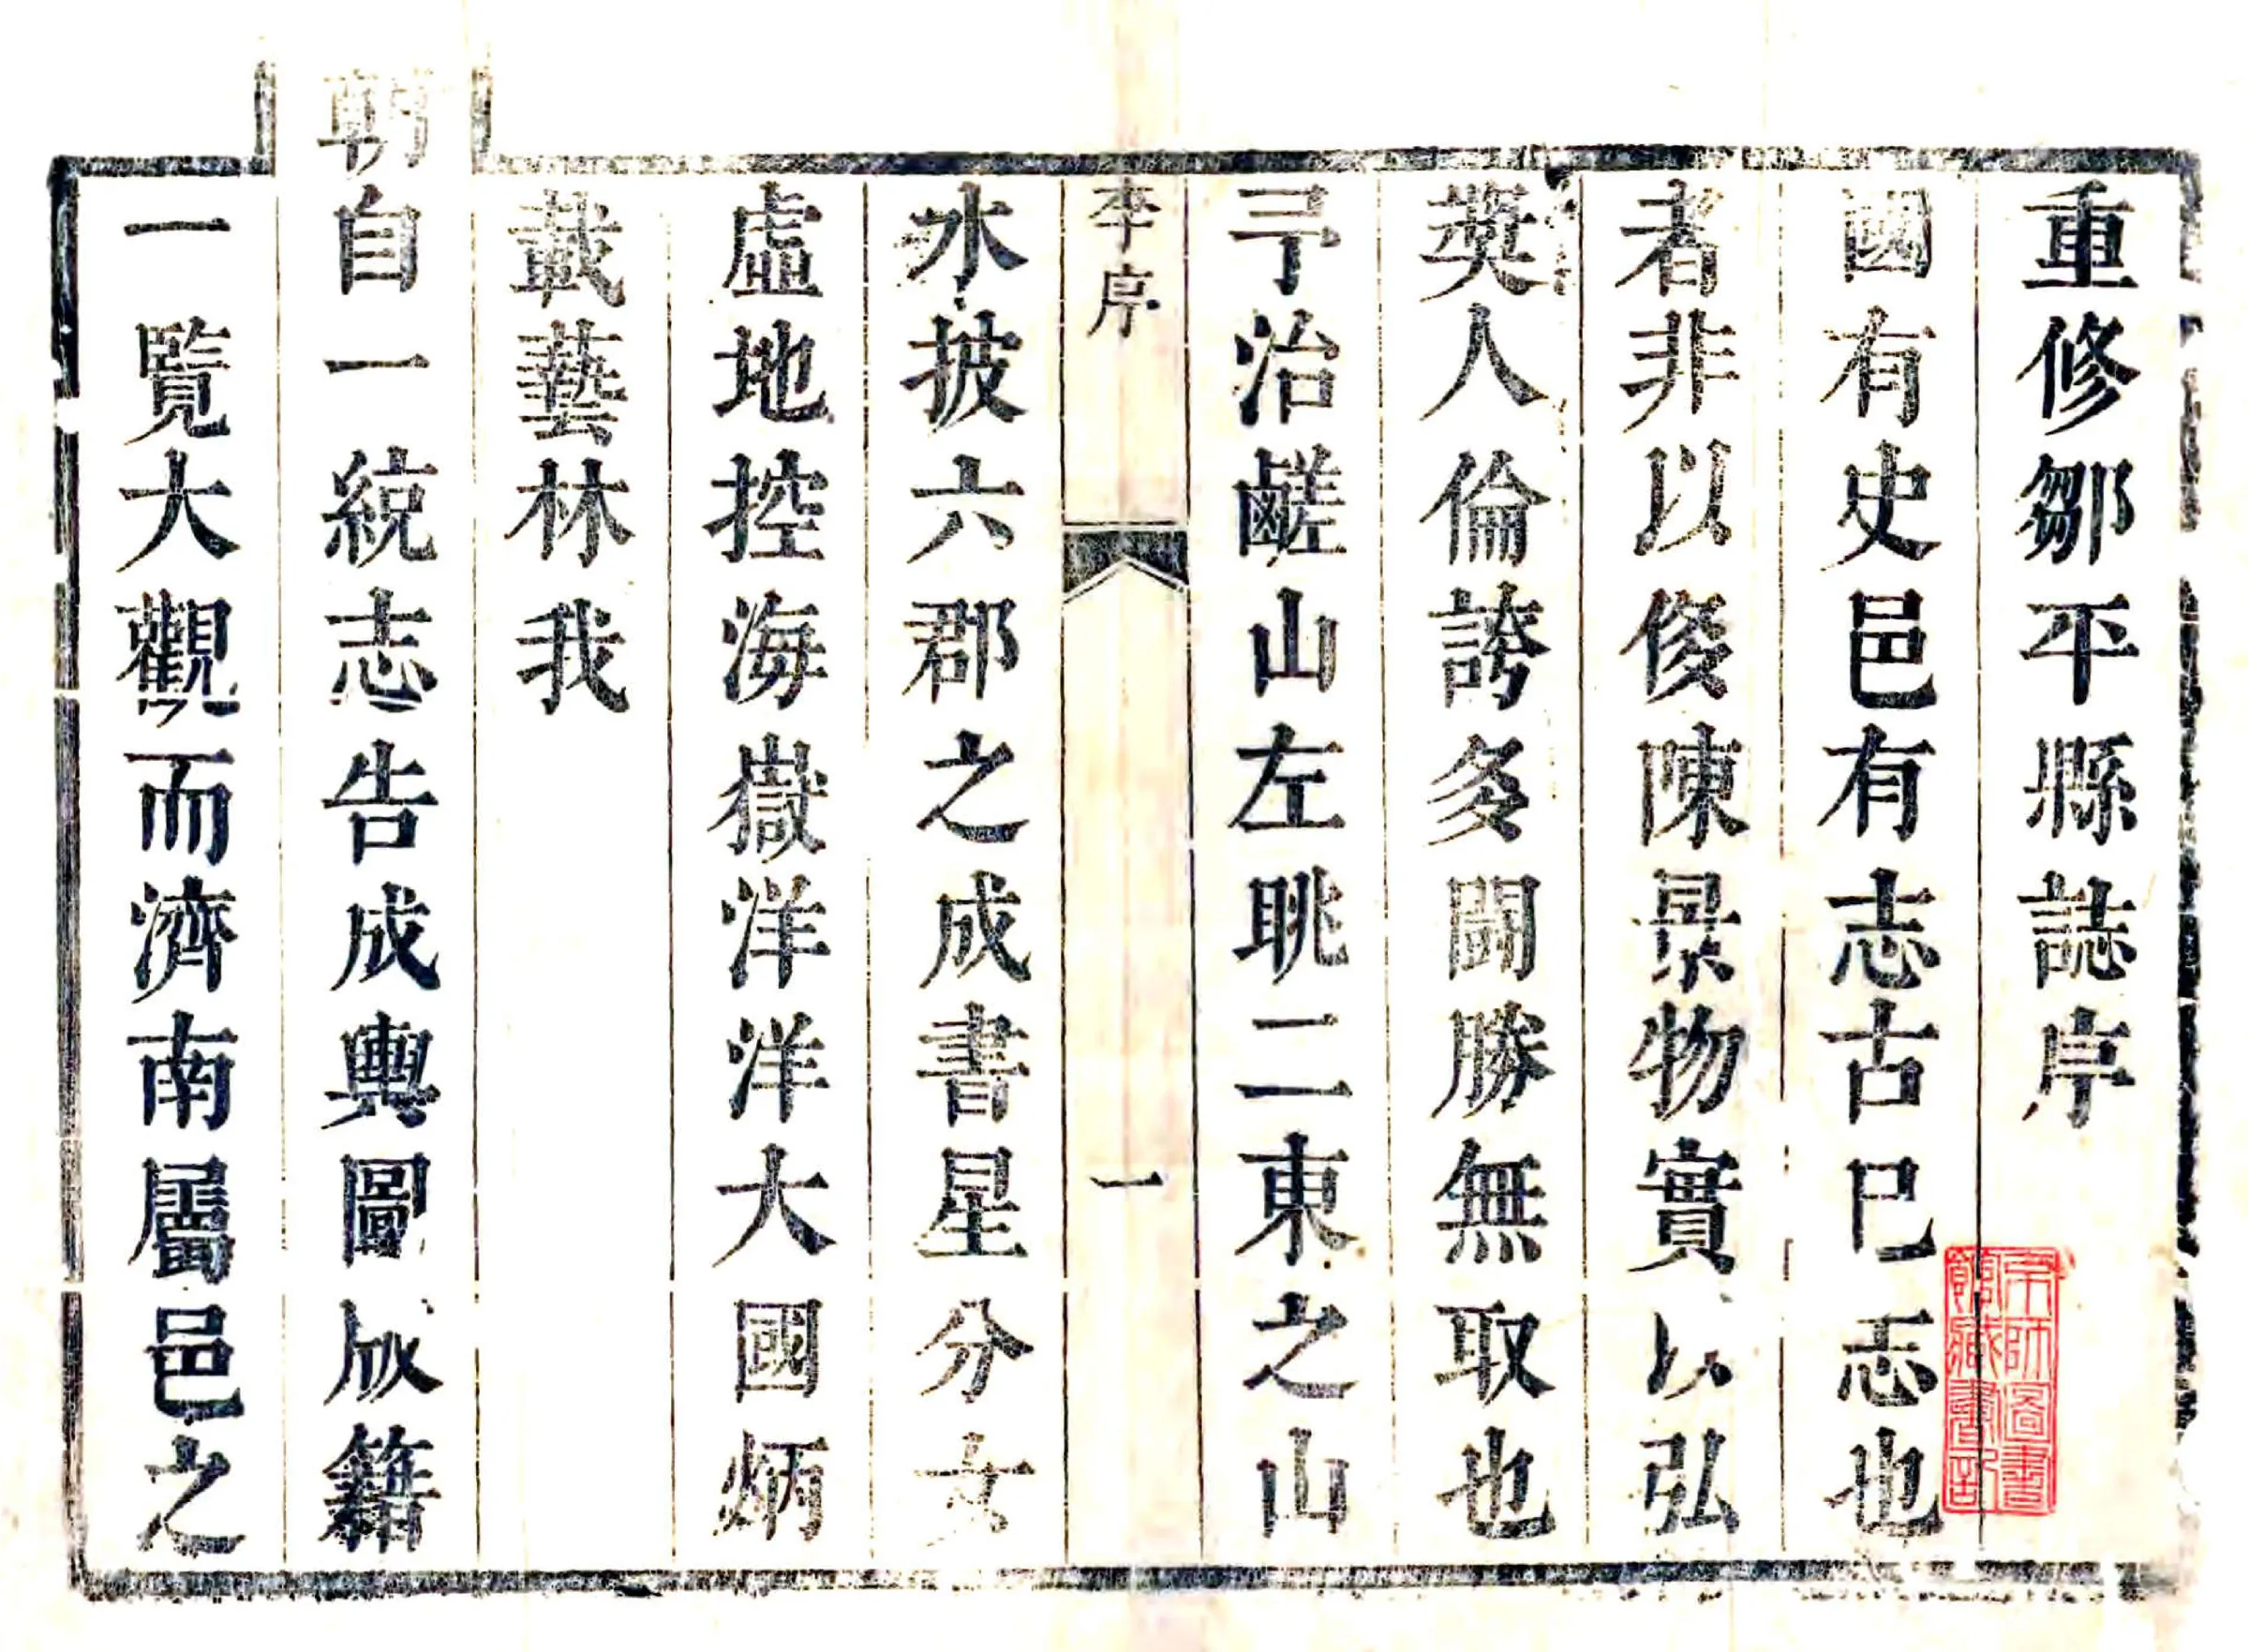 重修鄒平縣誌序
國有史邑有志古巳志也
者非以後陳景物實以弘
獎人倫誇多鬪勝無取也
予治鹺山左眺二東之山
水披六郡之成書星分女
虛地控海嶽洋洋大國炳
載藝林我
朝自一統志告成輿圖版籍
一覽大觀而濟南屬邑之
李序
一
京師圖書
館藏書記